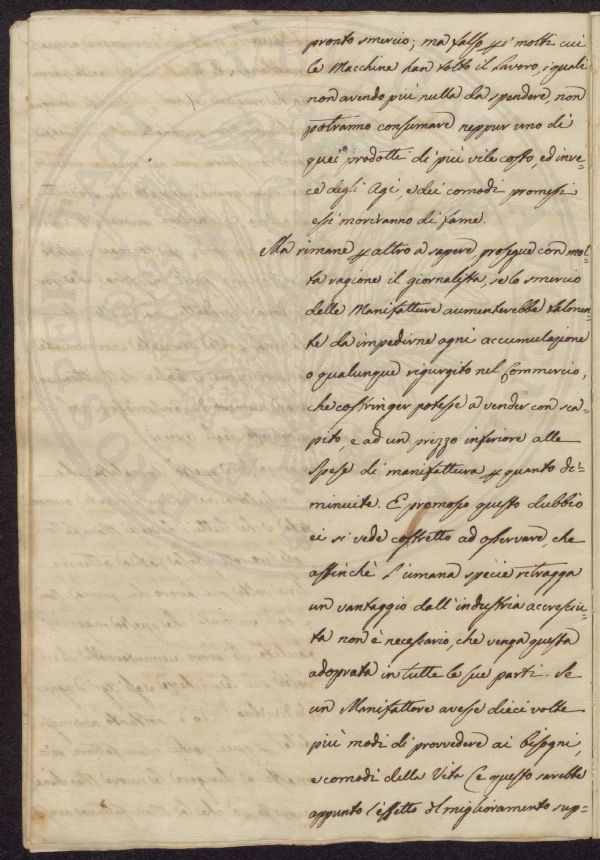 pronto smercio; ma falso p i molti cui
le Macchine han tolto il lavoro, i quali
non avendo più nulla da spendere non
potranno consumare neppur uno di
quei prodotti di più vile costo, ed inve=
ce degli Agi, e dei comodi promessi
essi moriranno di fame.
Ma rimane p altro a sapere prosegue con mol=
ta ragione il giornalista, se lo smercio
delle Manifatture aumenterebbe talmen=
te da impedirne ogni accumulazione
o qualunque rigurgito nel Commercio,
che costringer potesse a vender con sca=
pito, e ad un prezzo inferiore alle
spese di manifattura p quanto di=
minuite. E promosso questo dubbio
ei si vede costretto ad osservare, che
affinchè l'umana specie ritragga
un vantaggio dall'industria accresciu=
ta non è necessario, che venga questa
adoprata in tutte le sue parti. Se
un Manifattore avesse dieci volte
più modi di provvedere ai bisogni,
e comodi della Vita (e questo sarebbe
appunto l'effetto del miglioramento sup=